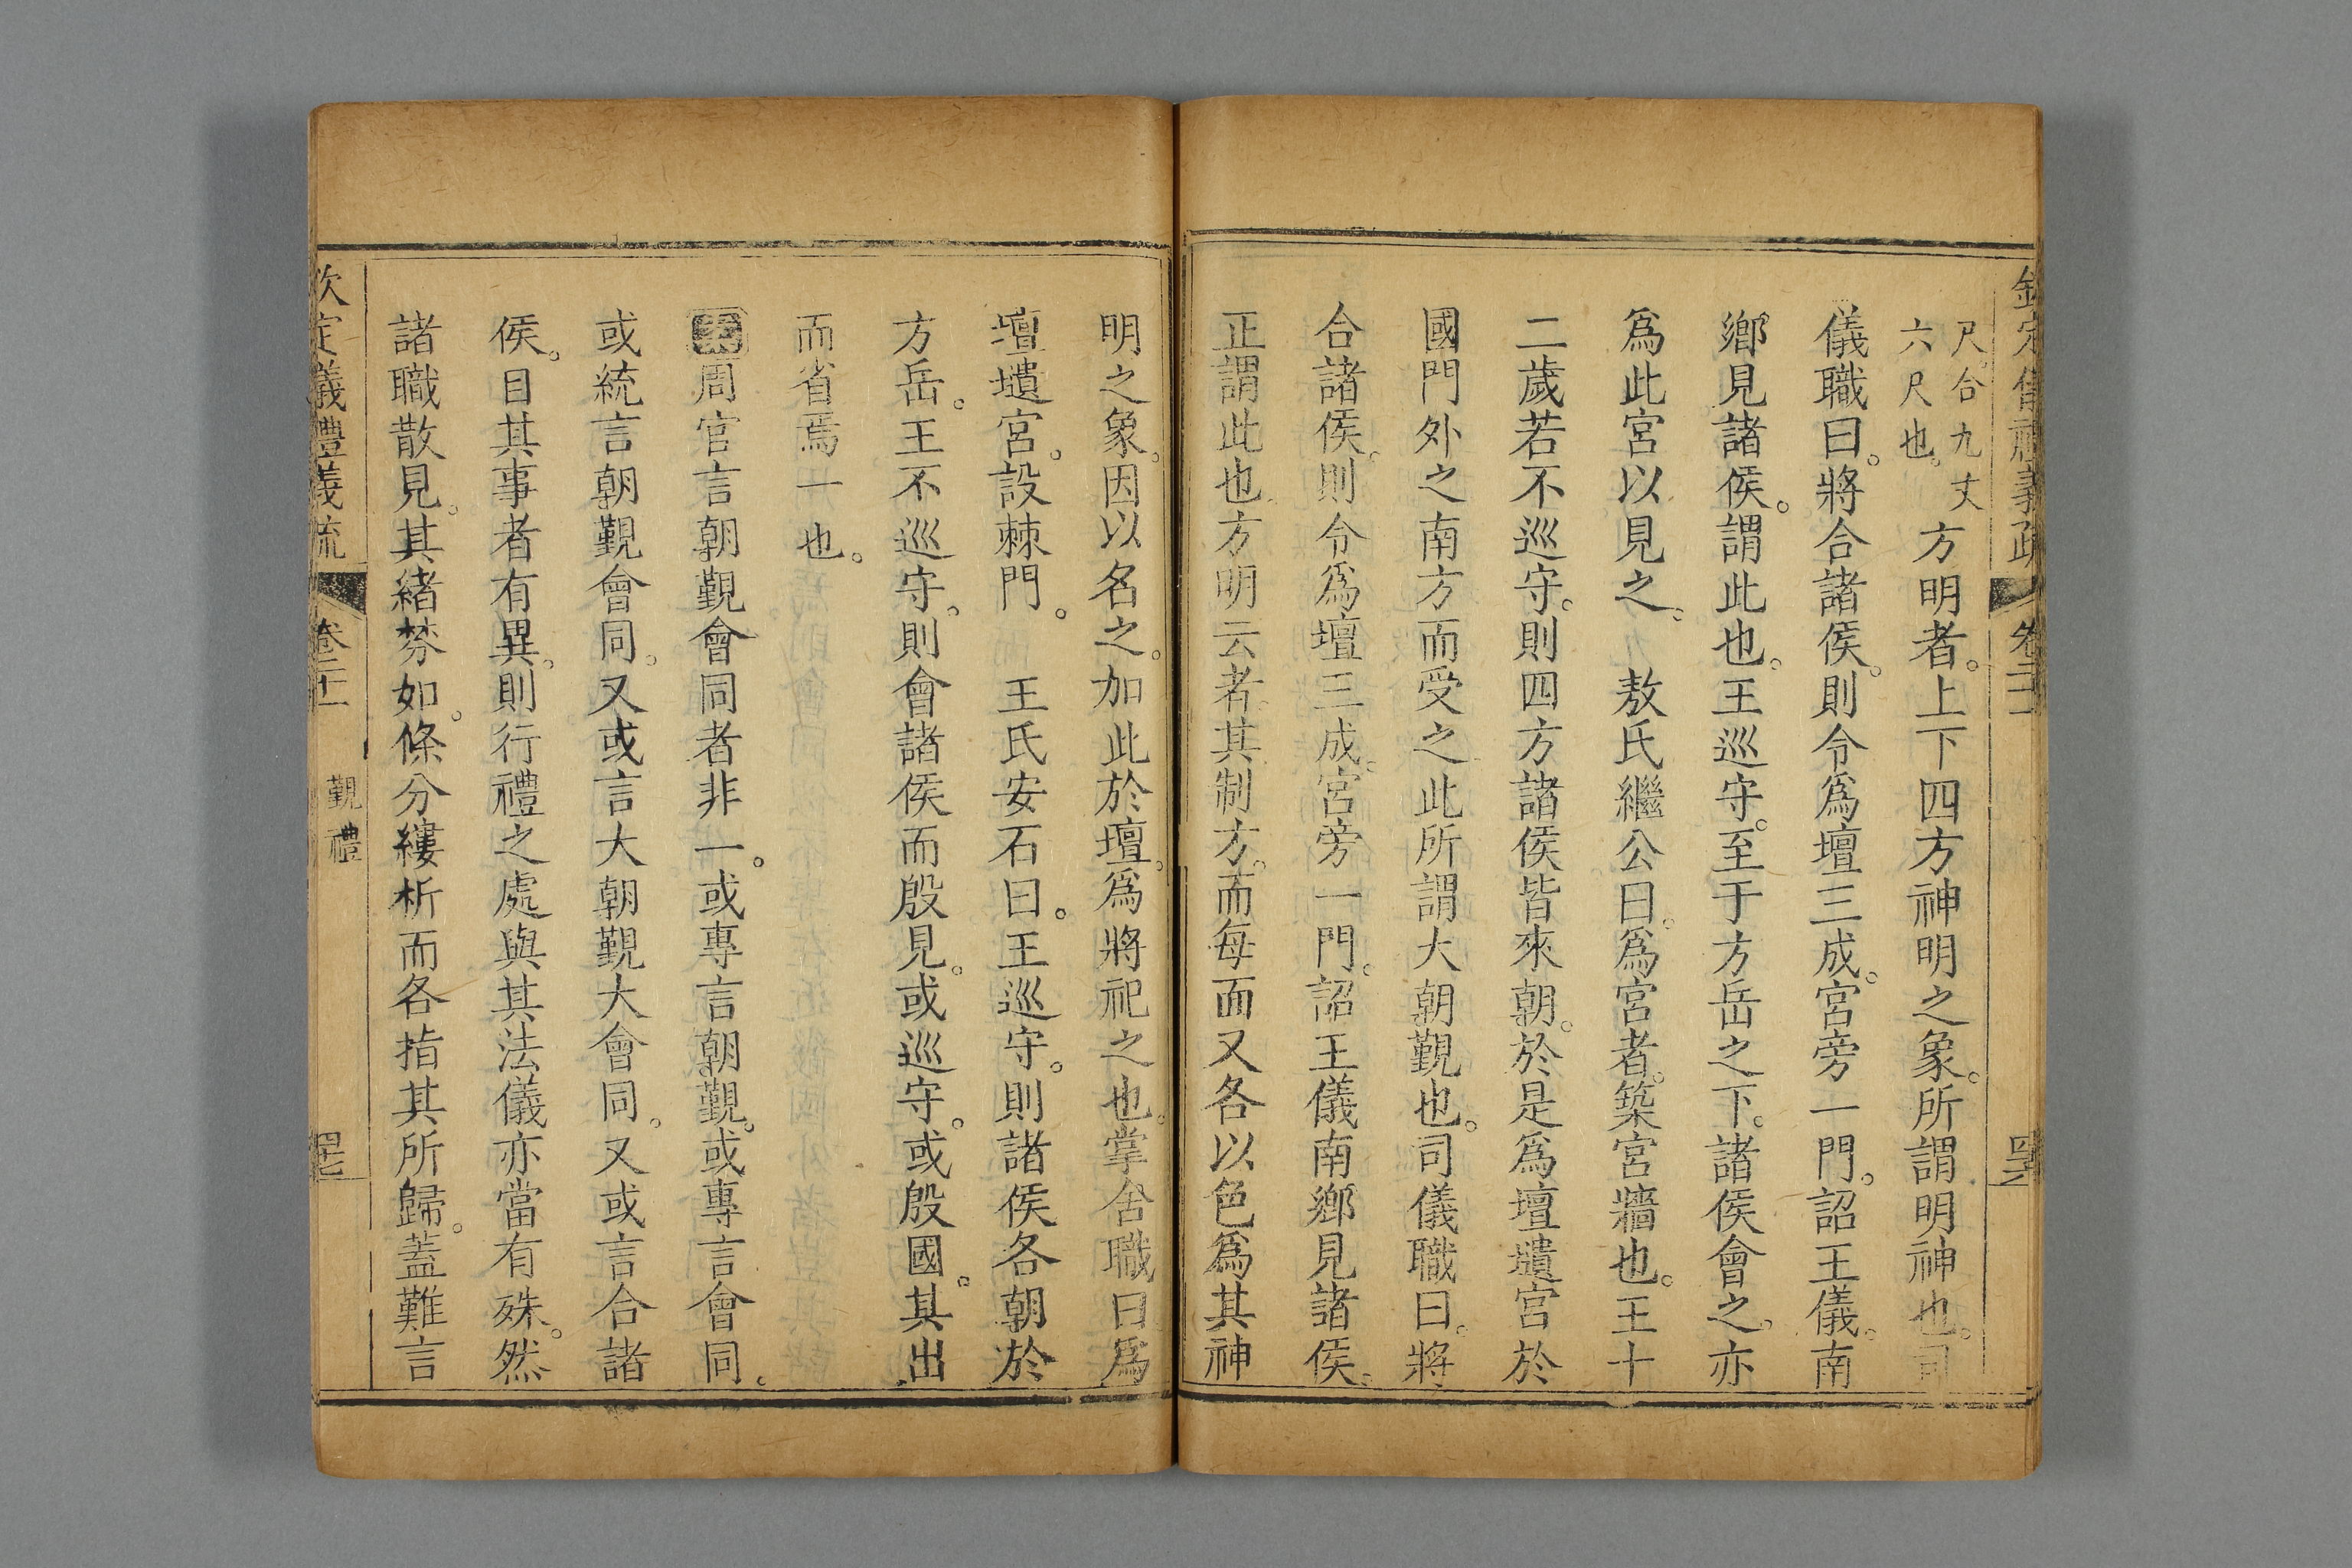 欽定儀禮義疏 卷二十一
尺。合九丈
六尺也。
方明者。上下四方神明之象。所謂明神也。司
儀職曰。將合諸侯。則令爲壇三成。宮旁一門。詔王儀。南
鄉見諸侯。謂此也。王巡守。至于方岳之下。諸侯會之。亦
爲此宮以見之。 敖氏繼公曰。爲宮者。築宮牆也。王十
二歲若不巡守。則四方諸侯皆來朝。於是爲壇壝宮於
國門外之南方而受之此所謂大朝覲也。司儀職曰。將
合諸侯。則令爲壇三成。宮旁一門。詔王儀南鄉見諸侯。
正謂此也方明云者。其制方。而每面又各以色爲其神
明之象。因以名之。加此於壇。爲將祀之也。掌舍職曰爲
壇壝宮。設棘門。 王氏安石曰。王巡守。則諸侯各朝於
方岳。王不巡守。則會諸侯而殷見。或巡守。或殷國。其出
而省焉一也。
周官言朝覲會同者非一。或專言朝覲。或專言會同。
或統言朝覲會同。又或言大朝覲大會同。又或言合諸
侯。目其事者有異。則行禮之處與其法儀亦當有殊。然
諸職散見。其緒棼如。條分縷析而各指其所歸。蓋難言
欽定儀禮義疏 卷二十一 覲禮